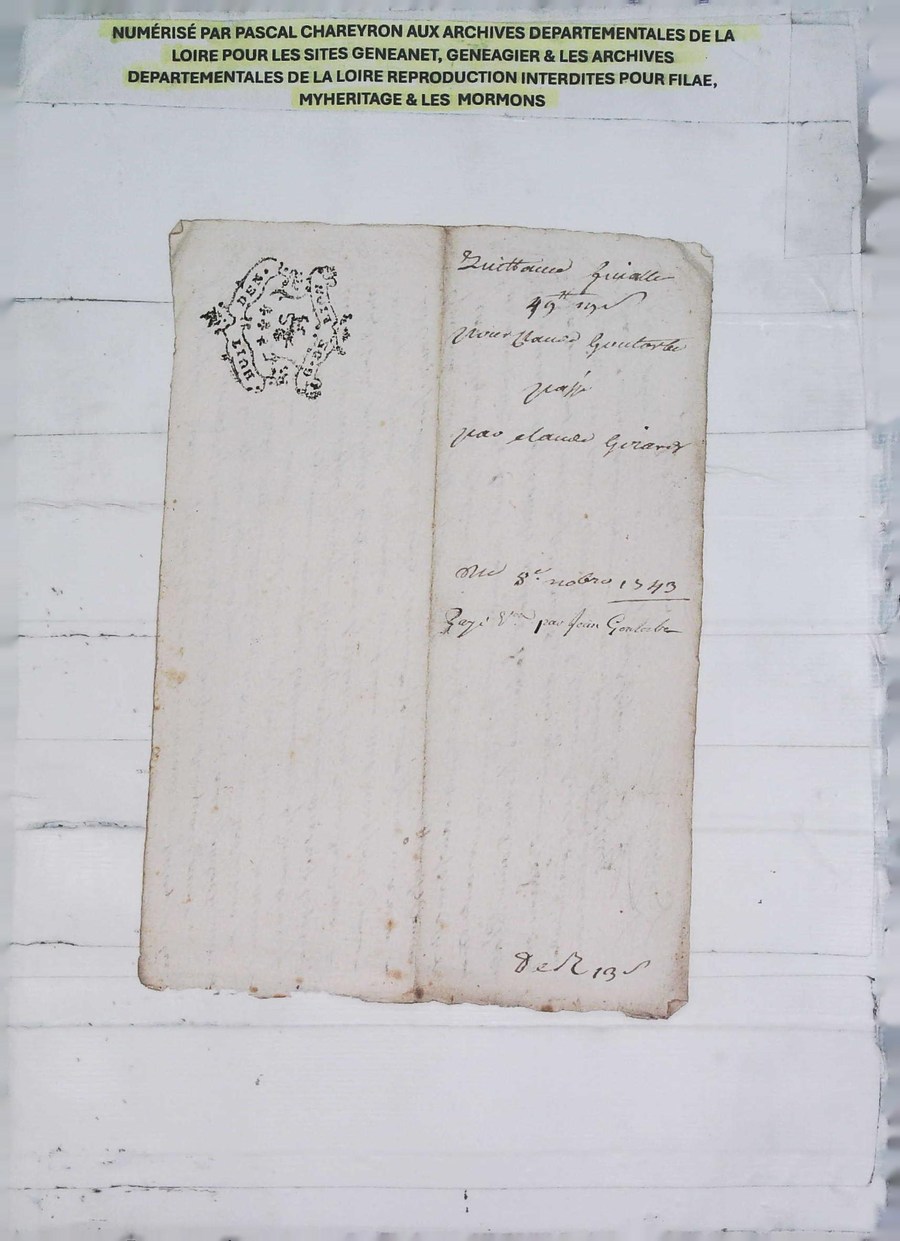 NUMÉRISÉ PAR PASCAL CHAREYRON AUX ARCHIVES DEPARTEMENTALES DE LA
LOIRE POUR LES SITES GENEANET, GENEAGIER & LES ARCHIVES
DEPARTEMENTALES DE LA LOIRE REPRODUCTION INTERDITES POUR FILAE,
MYHERITAGE & LES MORMONS
HUIT DSN. HUIT G. DE
49
pour Goutorbe
passé
par claude Girard
Du 8e nobre 1743
par Jean Goutorbe
13 s